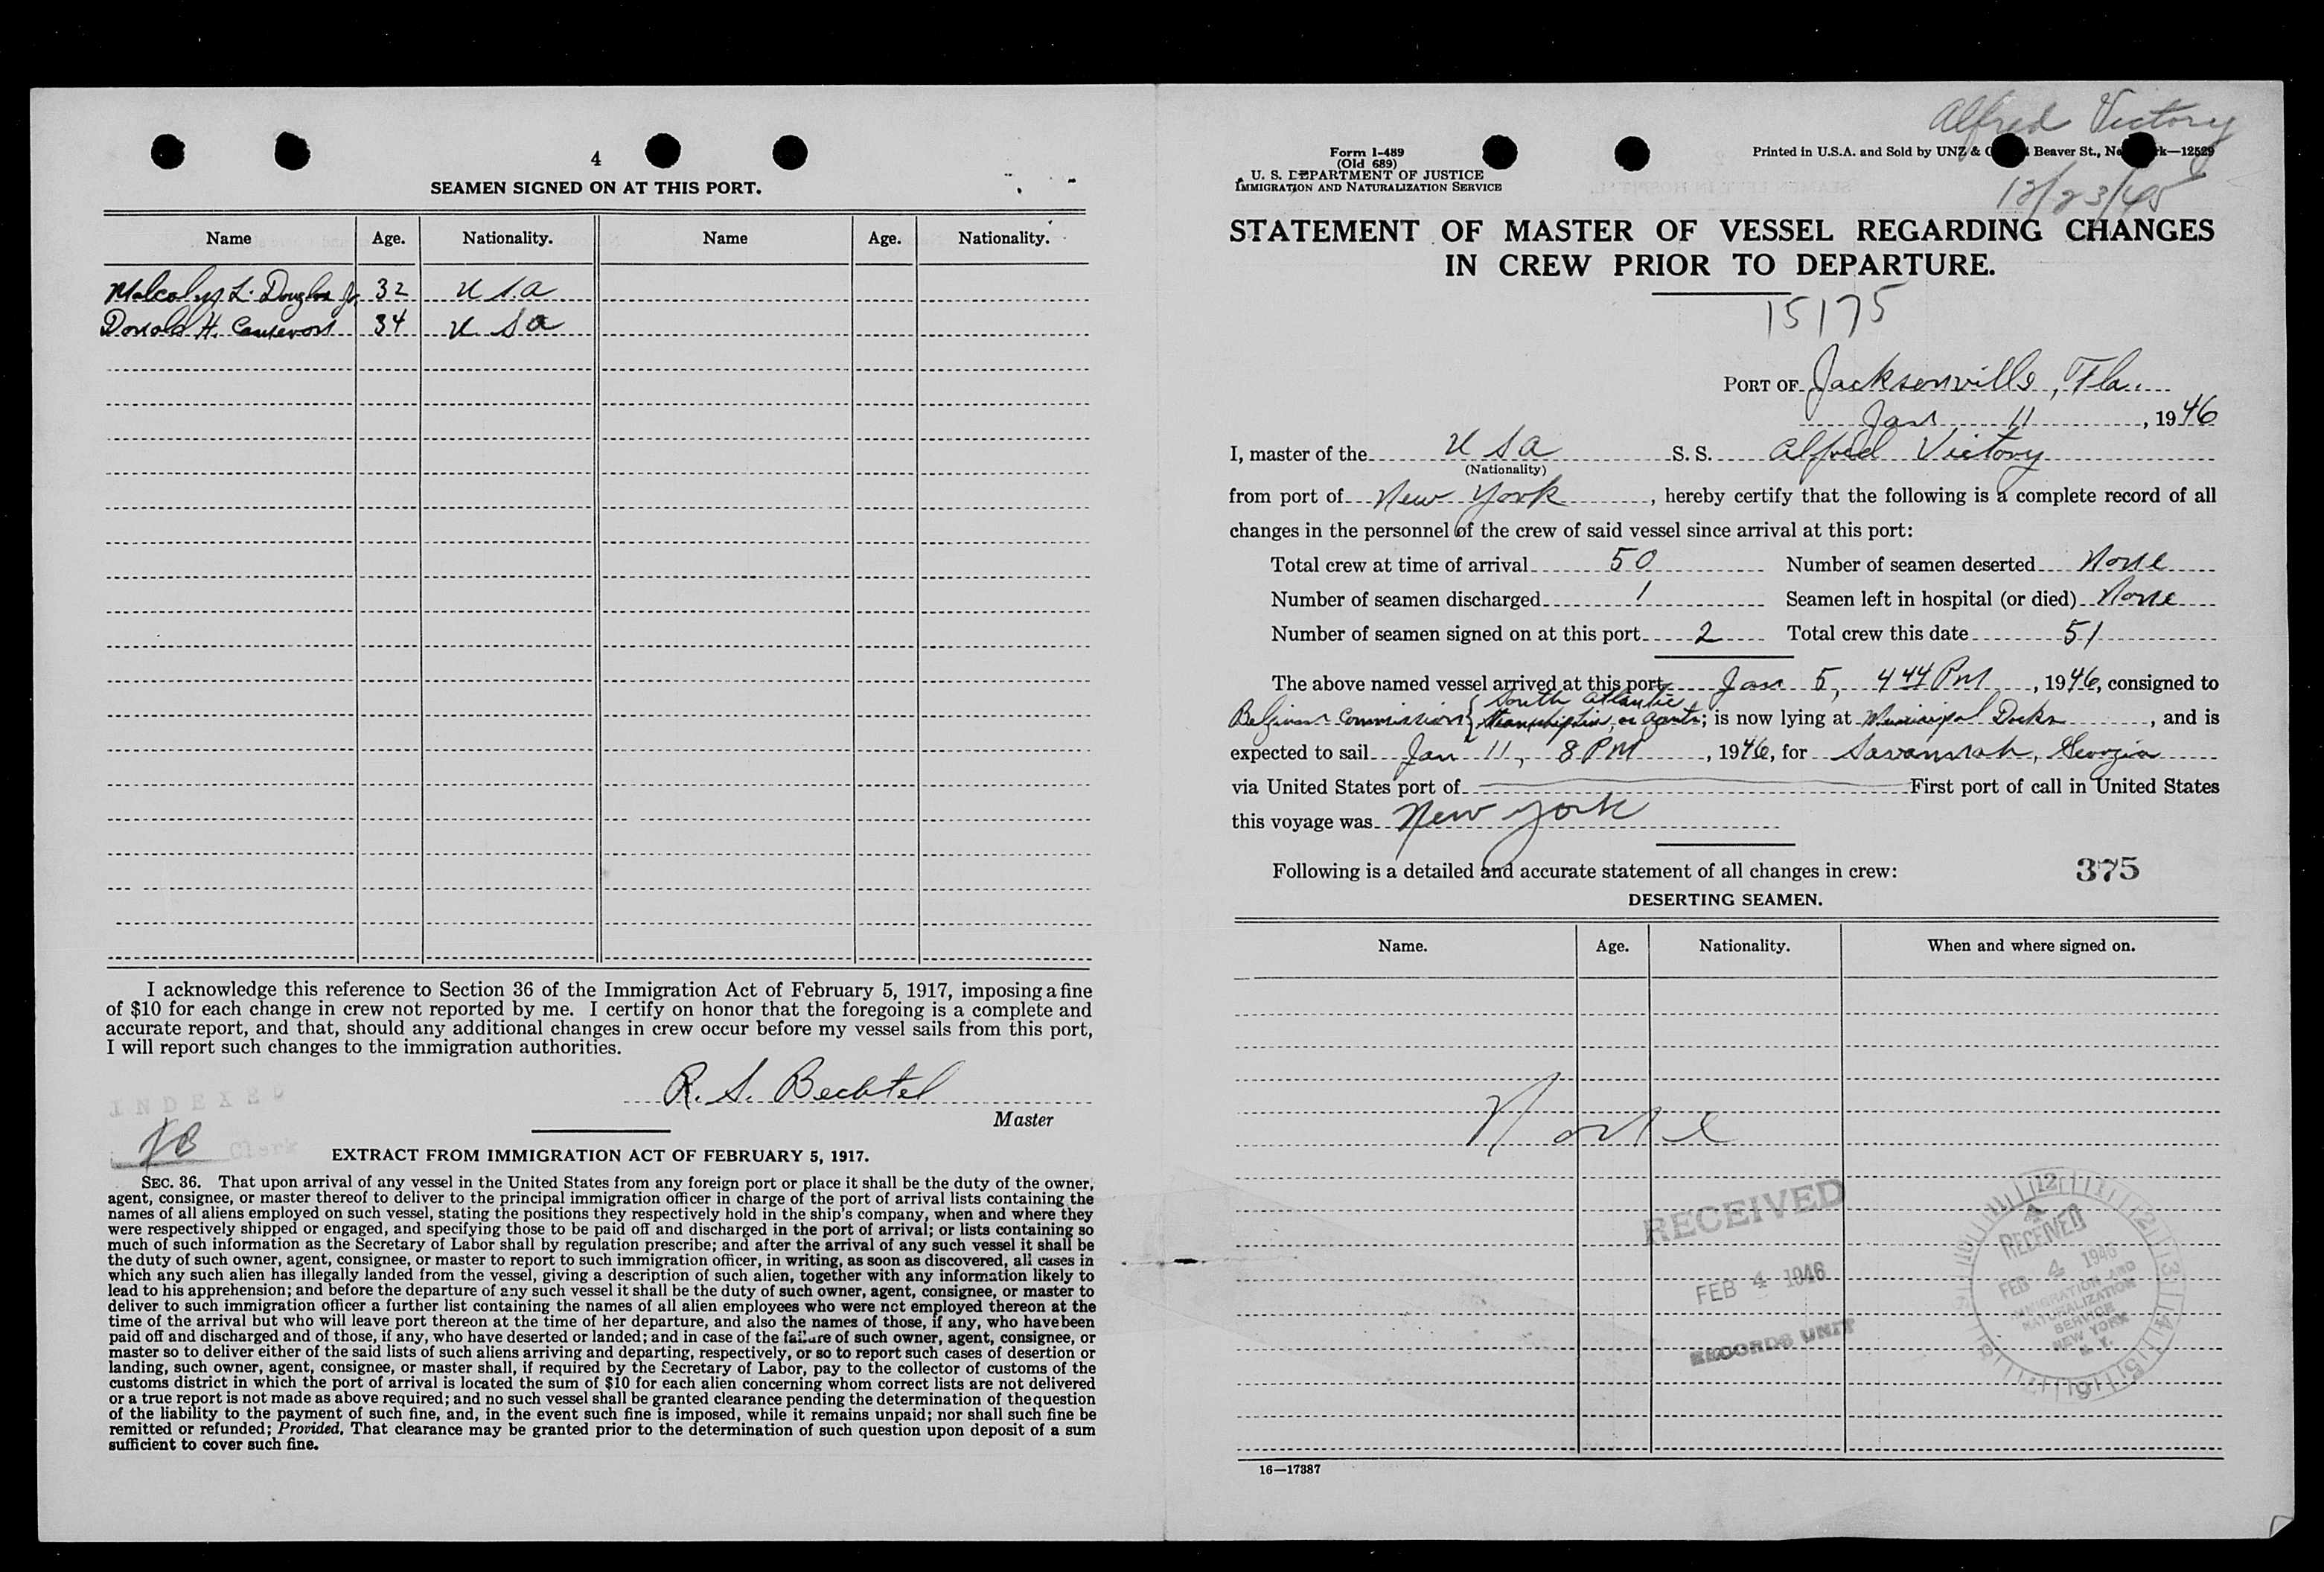 4
SEAMEN SIGNED ON AT THIS PORT.
Name Age. Nationality. Name Age. Nationality.
Malcolm L. Douglas Jr. 32 U S A
Donald H. 34 U S A
I acknowledge this reference to Section 36 of the Immigration Act of February 5, 1917, imposing a fine
of $10 for each change in crew not reported by me. I certify on honor that the foregoing is a complete and
accurate report, and that, should any additional changes in crew occur before my vessel sails from this port,
I will report such changes to the immigration authorities.
R. S. Bechtel
Master
INDEXED
Clerk
EXTRACT FROM IMMIGRATION ACT OF FEBRUARY 5, 1917.
SEC. 36. That upon arrival of any vessel in the United States from any foreign port or place it shall be the duty of the owner,
agent, consignee, or master thereof to deliver to the principal immigration officer in charge of the port of arrival lists containing the
names of all aliens employed on such vessel, stating the positions they respectively hold in the ship's company, when and where they
were respectively shipped or engaged, and specifying those to be paid off and discharged in the port of arrival; or lists containing so
much of such information as the Secretary of Labor shall by regulation prescribe; and after the arrival of any such vessel it shall be
the duty of such owner, agent, consignee, or master to report to such immigration officer, in writing, as soon as discovered, all cases in
which any such alien has illegally landed from the vessel, giving a description of such alien, together with any information likely to
lead to his apprehension; and before the departure of any such vessel it shall be the duty of such owner, agent, consignee, or master to
deliver to such immigration officer a further list containing the names of all alien employees who were not employed thereon at the
time of the arrival but who will leave port thereon at the time of her departure, and also the names of those, if any, who have been
paid off and discharged and of those, if any, who have deserted or landed; and in case of the failure of such owner, agent, consignee, or
master so to deliver either of the said lists of such aliens arriving and departing, respectively, or so to report such cases of desertion or
landing, such owner, agent, consignee, or master shall, if required by the Secretary of Labor, pay to the collector of customs of the
customs district in which the port of arrival is located the sum of $10 for each alien concerning whom correct lists are not delivered
or a true report is not made as above required; and no such vessel shall be granted clearance pending the determination of the question
of the liability to the payment of such fine, and, in the event such fine is imposed, while it remains unpaid; nor shall such fine be
remitted or refunded; Provided, That clearance may be granted prior to the determination of such question upon deposit of a sum
sufficient to cover such fine.
Alfred Victory
12/23/45
Form I-489
(Old 689)
U. S. DEPARTMENT OF JUSTICE
IMMIGRATION AND NATURALIZATION SERVICE
Printed in U.S.A. and Sold by UNZ & Beaver St., —12529
STATEMENT OF MASTER OF VESSEL REGARDING CHANGES
IN CREW PRIOR TO DEPARTURE.
15175
PORT OF Jacksonville, Fla.
Jan 11, 1946
I, master of the U S A S. S. Alfred Victory
(Nationality)
from port of New York, hereby certify that the following is a complete record of all
changes in the personnel of the crew of said vessel since arrival at this port:
Total crew at time of arrival 50 Number of seamen deserted None
Number of seamen discharged 1 Seamen left in hospital (or died) None
Number of seamen signed on at this port 2 Total crew this date 51
The above named vessel arrived at this port Jan 5, 4 44 PM, 1946, consigned to
South Atlantic
Belgium Commission Steamship Lin or agents; is now lying at Municipal Docks, and is
expected to sail Jan 11, 8 PM, 1946, for Savannah, Georgia
via United States port of First port of call in United States
this voyage was New York
Following is a detailed and accurate statement of all changes in crew:
375
DESERTING SEAMEN.
Name. Age. Nationality. When and where signed on.
None
RECEIVED
FEB 4 1946
RECORDS UNIT
RECEIVED
FEB 4 1946
IMMIGRATION AND
NATURALIZATION
SERVICE
NEW YORK
N. Y.
16—17387